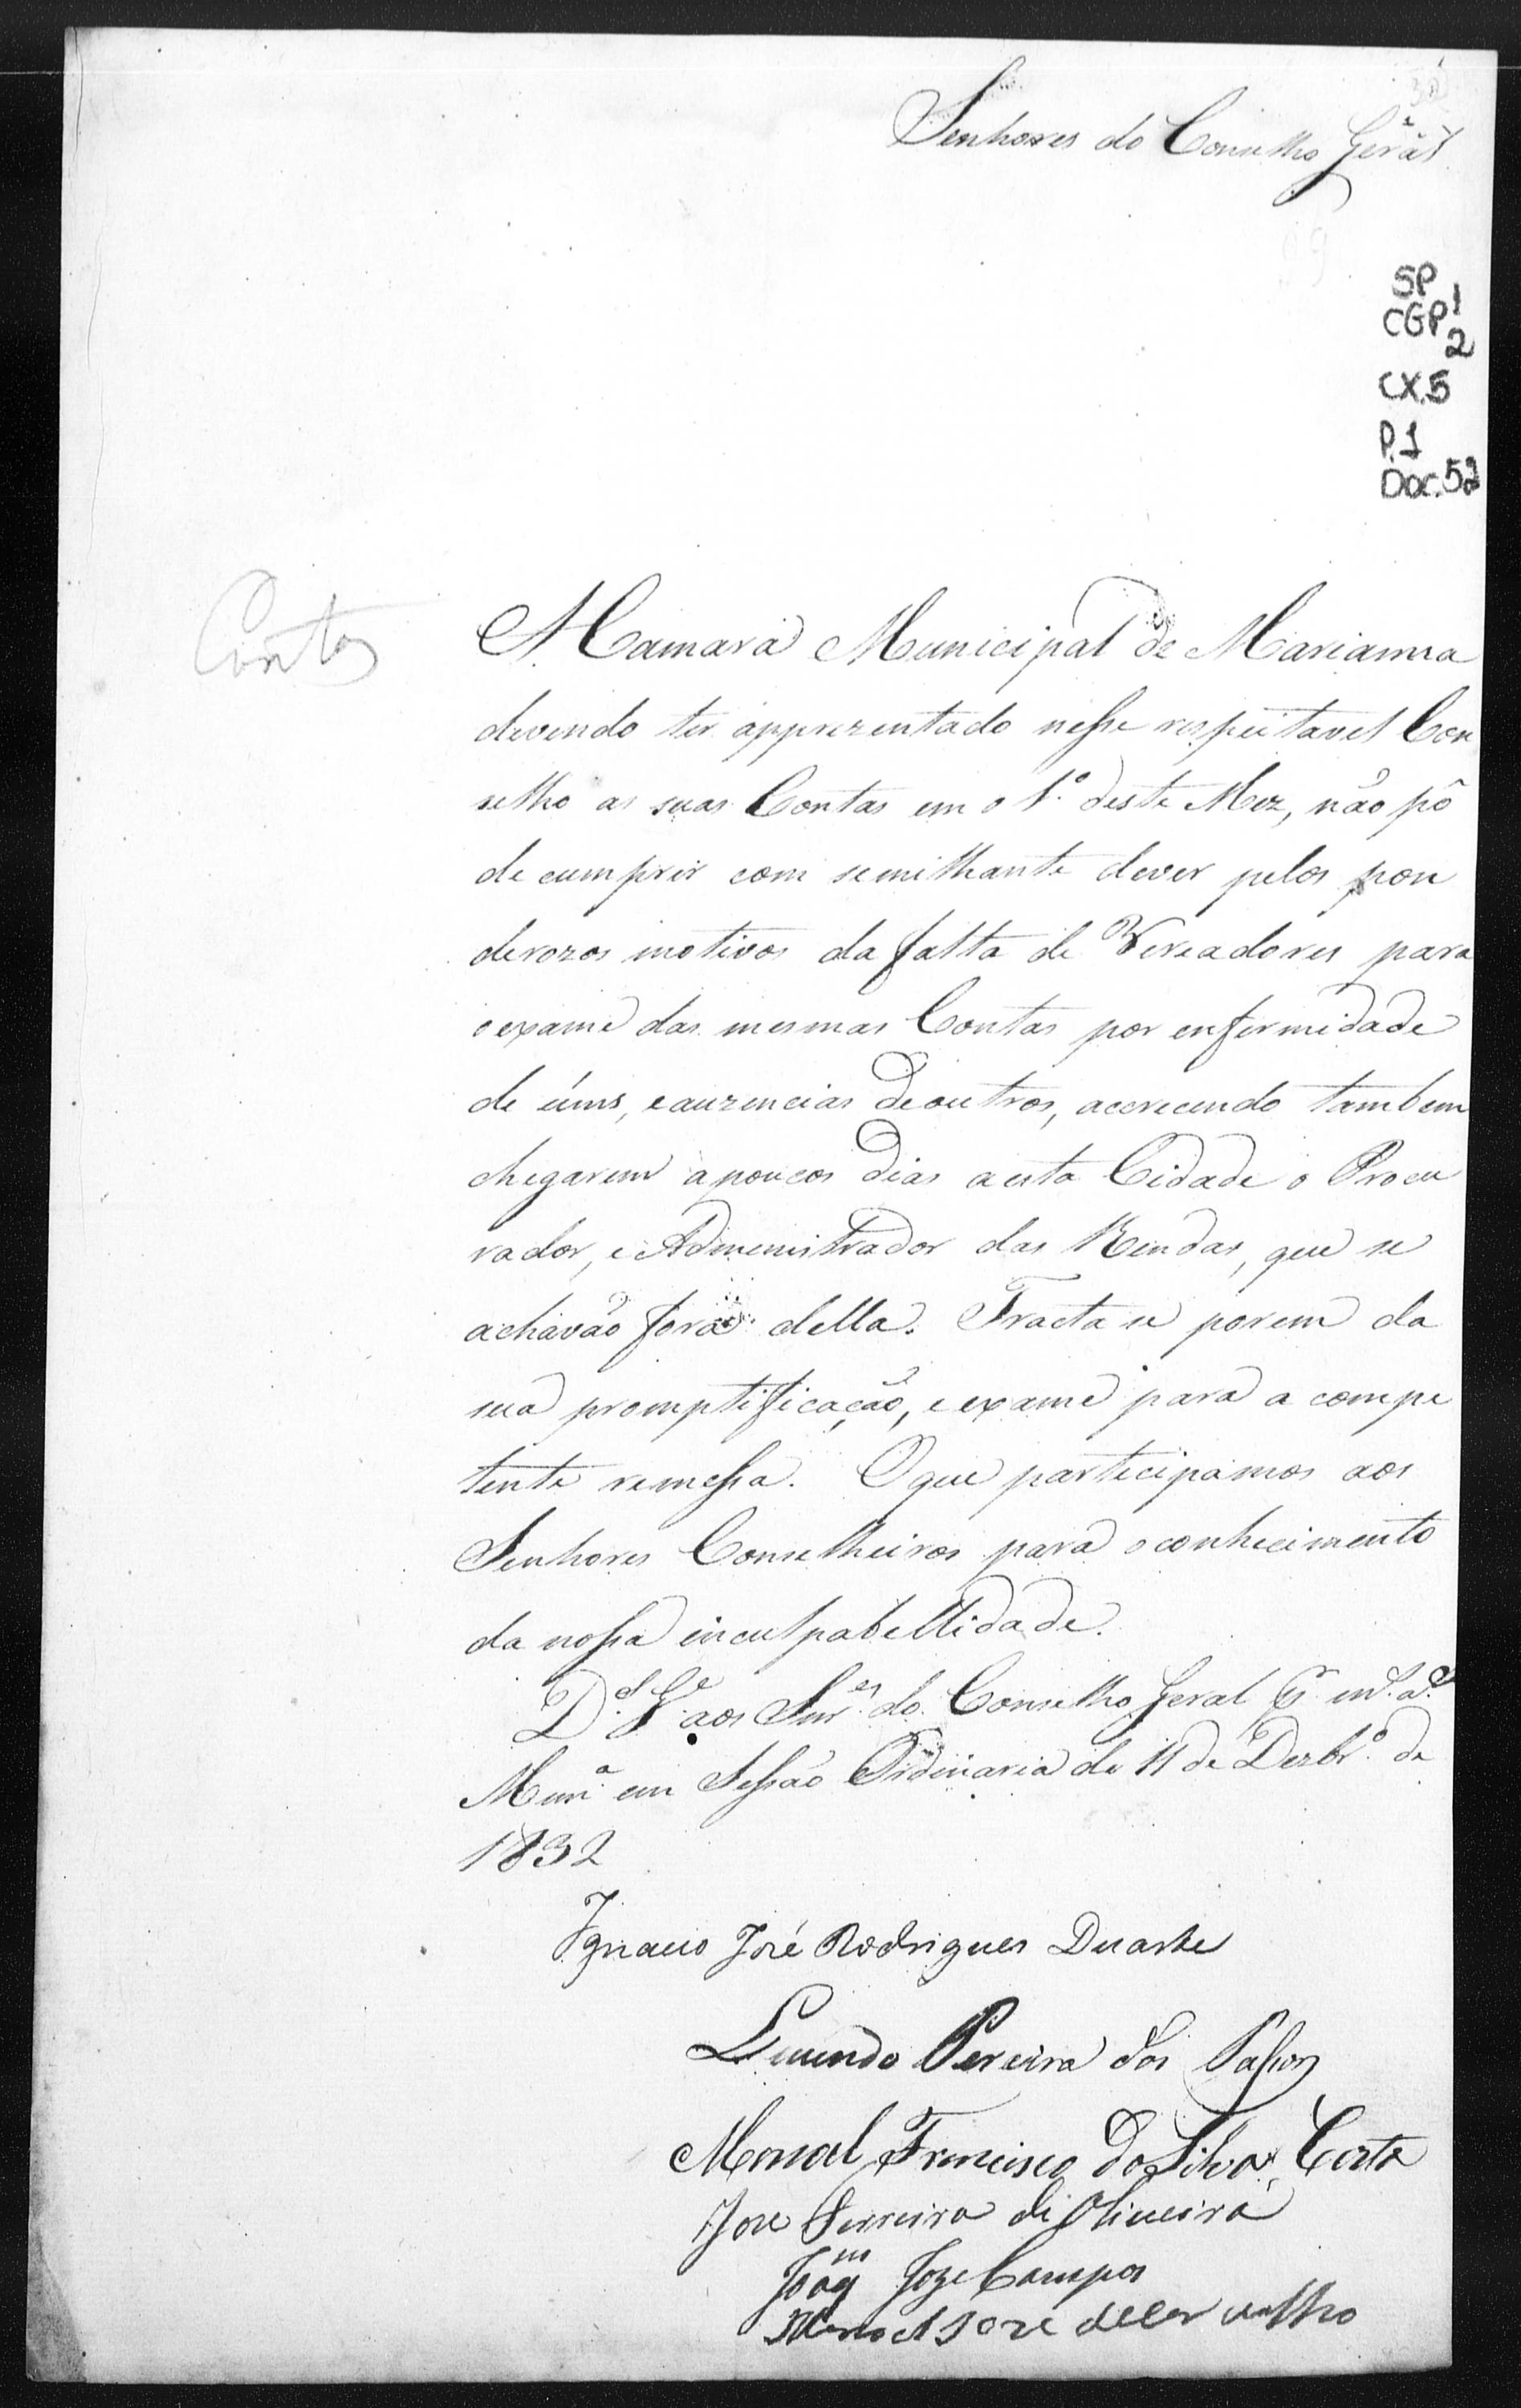 Senhores do Conselho Gerál
SP
CGP 1
2
CX.5
P.1
Doc. 52
Contas
A Camara Municipal de Marianna
devendo ter apprezentado nesse respeitavel Con
selho as suas Contas em o 1.º deste Mez, não pô
de cumprir com semilhante dever pelos pon
derozos motivos da falta de Vereadores para
o exame das mesmas Contas por enfermidade
de úms, e auzencias de outros, acrecendo tambem
chegarem a poucos dias a esta Cidade o Procu
rador, e Admenistrador das Rendas, que se
achavão fora della. Tracta se porem da
sua promptificação, e exame para a compe
tente remessa. O que participamos aos
Senhores Conselheiros para o conhecimento
da nossa inculpabellidade.
D.s G.e aos Snr.es do Conselho Geral
Mar.na em Sessão Ordinaria de 11 de Dezbr.º de
1832
Ignacio José Rodrigues Duarte
Pereira dos Passos
Manoel Francisco da Silva Costa
Jose Ferreira de Oliveira
Joaq.m Joze Campos
Manoel Joze de Carvalho